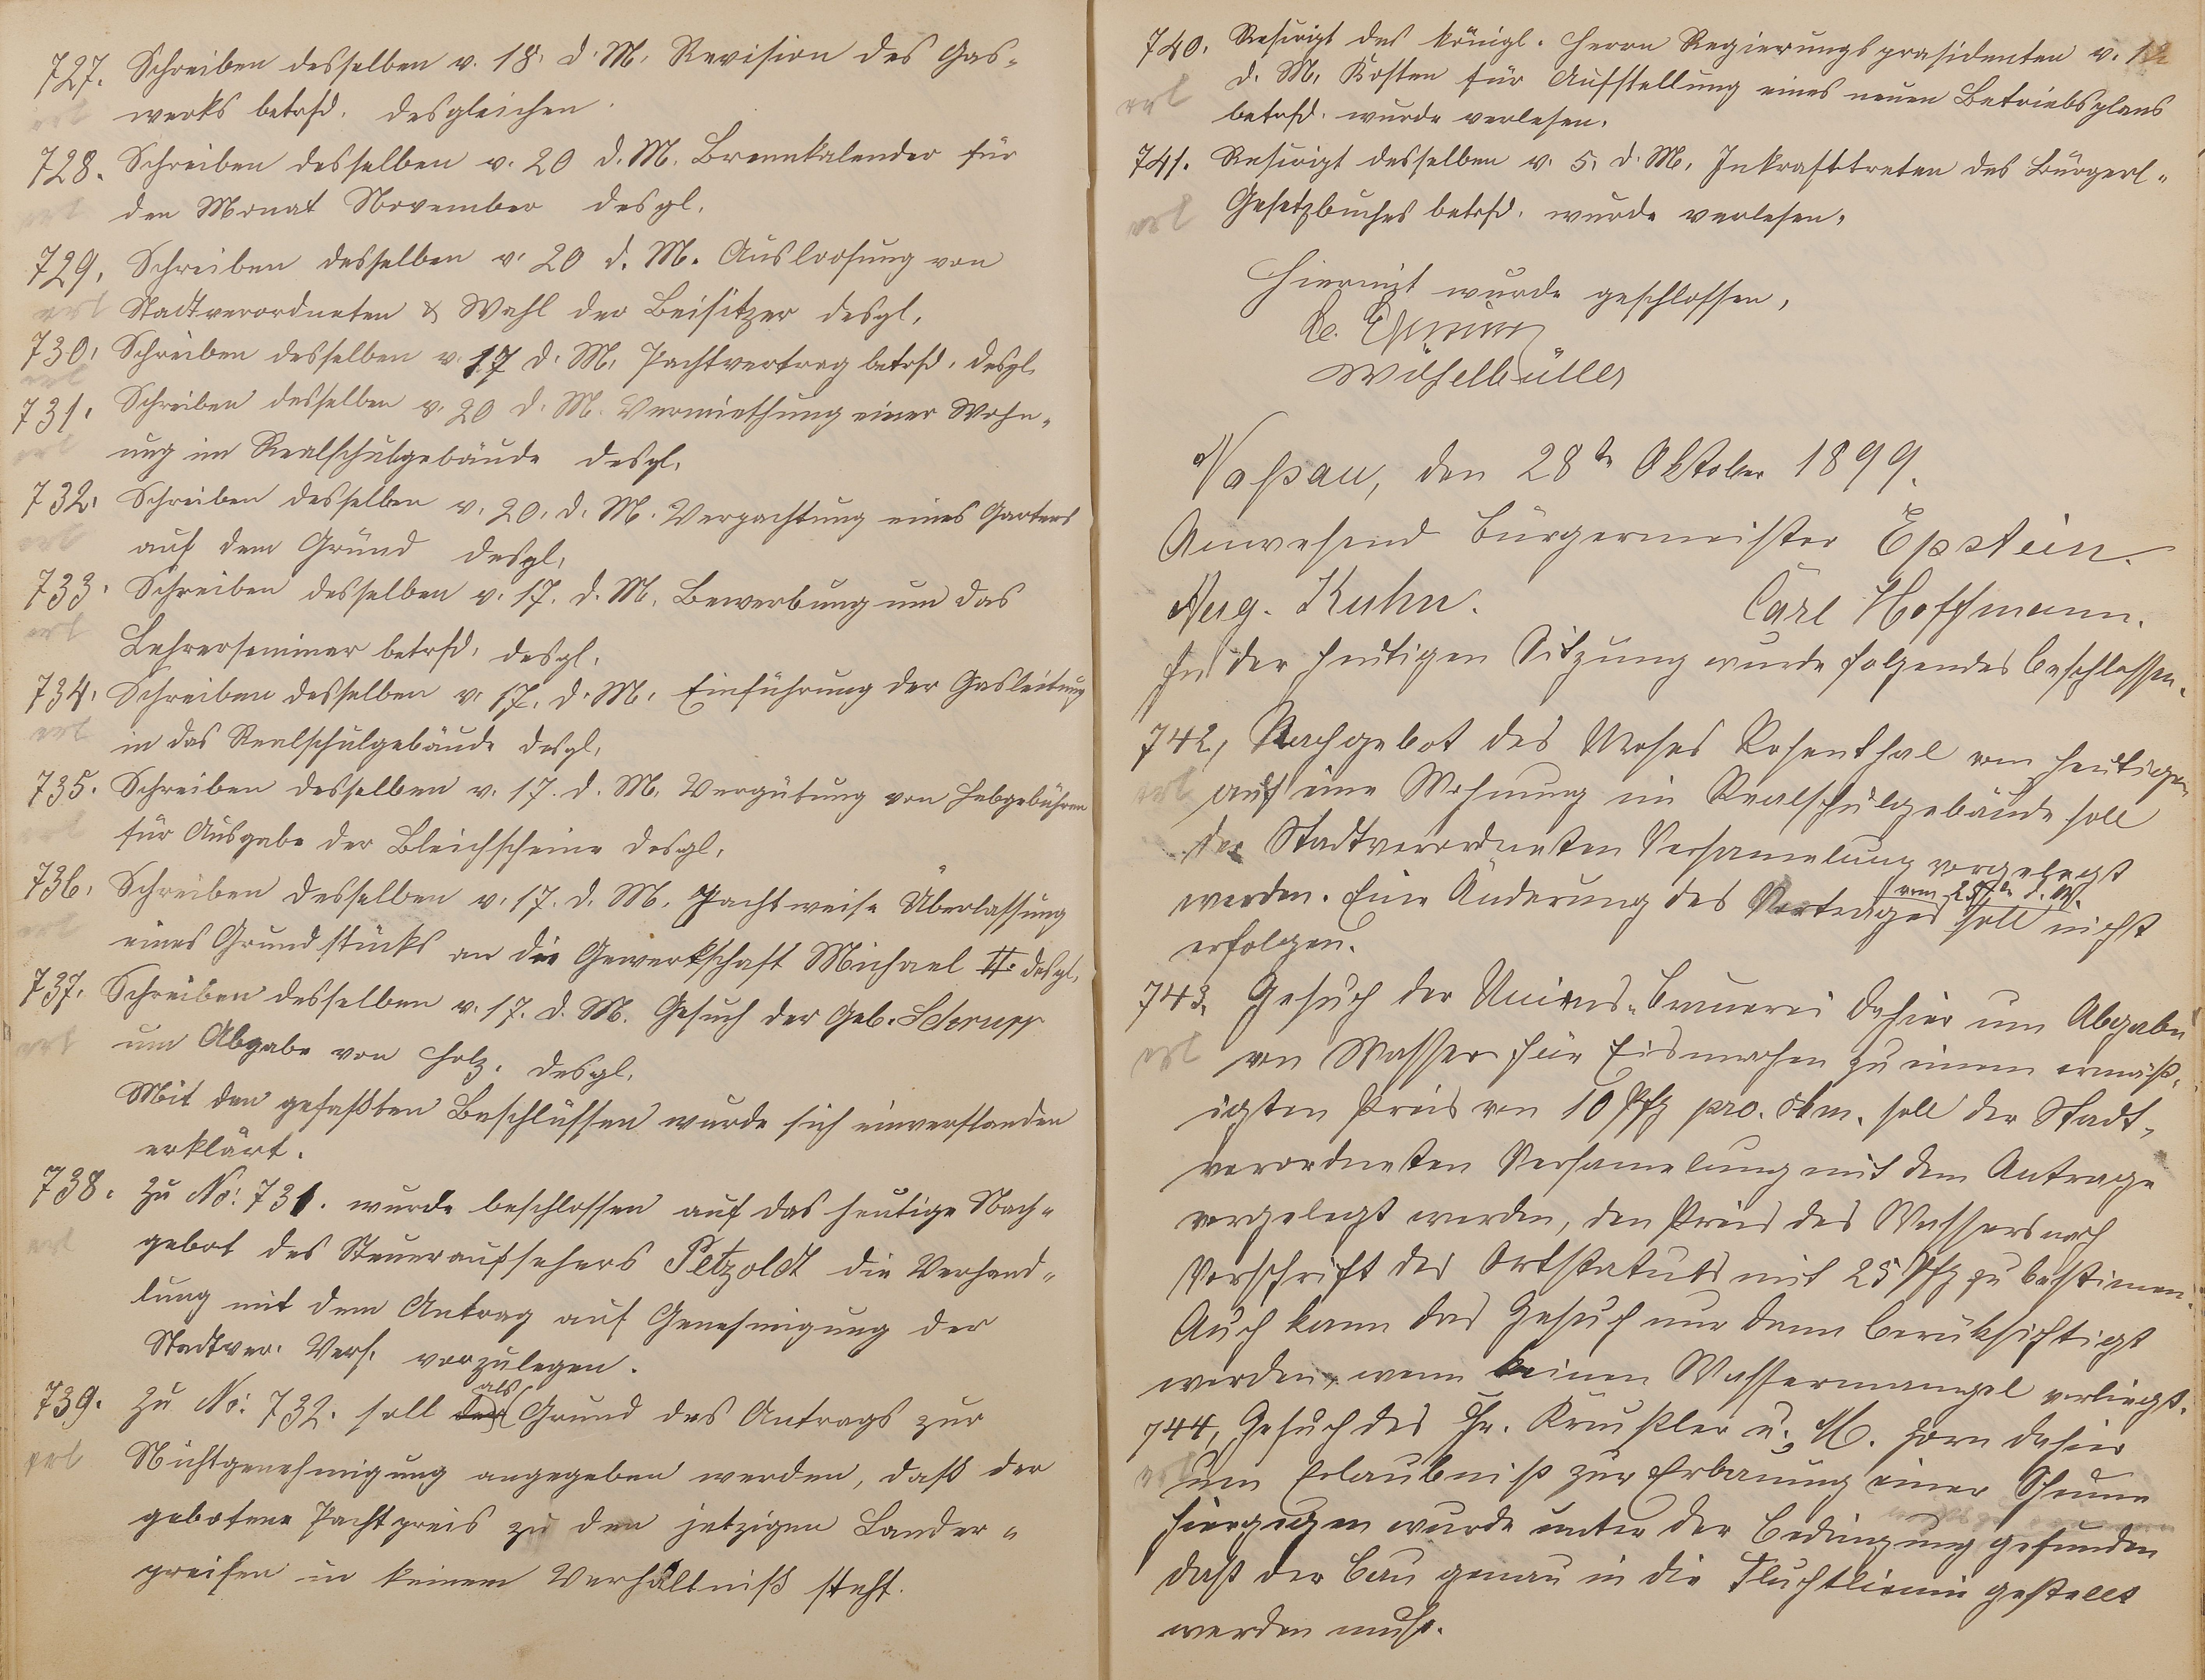 727. Schreiben desselben v. 18. d. M. Revision des Gas-
erl
werks betrfd. desgleichen.
728. Schreiben desselben v. 20 d. M. Brennkalender für
erl
den Monat November desgl.
729. Schreiben desselben v. 20 d. M. Ausloosung von
erl
Stadtverordneten & Wahl der Beisitzer desgl.
730. Schreiben desselben v. 17 d. M. Pachtvertrag betrfd. desgl.
erl
731. Schreiben desselben v. 20 d. M. Vermiethung einer Wohn-
erl
ung im Realschulgebäude desgl.
732. Schreiben desselben v. 20. d. M. Verpachtung eines Gartens
erl
auf dem Gründ desgl.
733. Schreiben desselben v. 17. d. M. Bewerbung um das
erl
Lehrerseminar betrfd. desgl.
734. Schreiben desselben v. 17. d. M. Einführung der Gasleitung
erl
in das Realschulgebäude desgl.
735. Schreiben desselben v. 17. d. M. Vergütung von Hebgebühren
erl
für Ausgabe der Bleichscheine desgl.
736. Schreiben desselben v. 17. d. M. Pachtweise Überlassung
erl
eines Grundstücks an die Gewerkschaft Michael II. desgl.
737. Schreiben desselben v. 17. d. M. Gesuch der Geb. Schrupp
erl
um Abgabe von Holz. desgl.
Mit den gefaßten Beschlüssen wurde sich einverstanden
erklärt.
738. Zu No: 731. wurde beschlossen auf das heutige Nach-
erl
gebot des Steueraufsehers Petzoldt die Verhand-
lung mit dem Antrag auf Genehmigung der
Stadtver. Vers. vorzulegen.
739. Zu No: 732. soll als Grund des Antrags zur
erl
Nichtgenehmigung angegeben werden, daß der
gebotene Pachtpreis zu den jetzigen Länder-
preisen in keinem Verhältniß steht.
740. Rescript des königl. Herrn Regierungspräsidenten v. 12
erl
d. M. Kosten für Aufstellung eines neuen Betriebsplans
betrfd. wurde verlesen.
741. Rescript desselben v. 5. d. M. Inkrafttreten des Bürgerl.
erl
Gesetzbuches betrfd. wurde verlesen.
Hiermit wurde geschlossen.
Naßau, den 28te Oktober 1899.
Anwesend Bürgermeister Epstein.
Aug. Kuhn. Carl Hoffmann.
In der heutigen Sitzung wurde folgendes beschlossen.
742, Nachgebot des Moses Rosenthal vom heutigen
erl
auf eine Wohnung im Realschulgebäude soll
der Stadtverordneten Versamelung vorgelegt
werden. Eine Änderung des Vertrages vom 25te d. M. soll nicht
erfolgen.
743. Gesuch der Unions-Brauerei dahier um Abgabe
erl
von Wasser für Eismachen zu einem ermäß-
igten Preis von 10 Pfg pro. cbm. soll der Stadt-
verordneten Versamelung mit dem Antrage
vorgelegt werden, den Preis des Wassers nach
Vorschrift des Ortstatuts mit 25 Pfg zu bestimen.
Auch kann das Gesuch nur dann berüksichtigt
werden, wenn keinen Wassermangel vorliegt.
744, Gesuch des Hr. Kreußler u. M. Horn dahier
erl
um Erlaubniß zur Erbauung einer Scheune
hiergegen wurde unter der Bedingung gefunden
daß der Bau genau in die Fluchtlinie gestellt
werden muß.